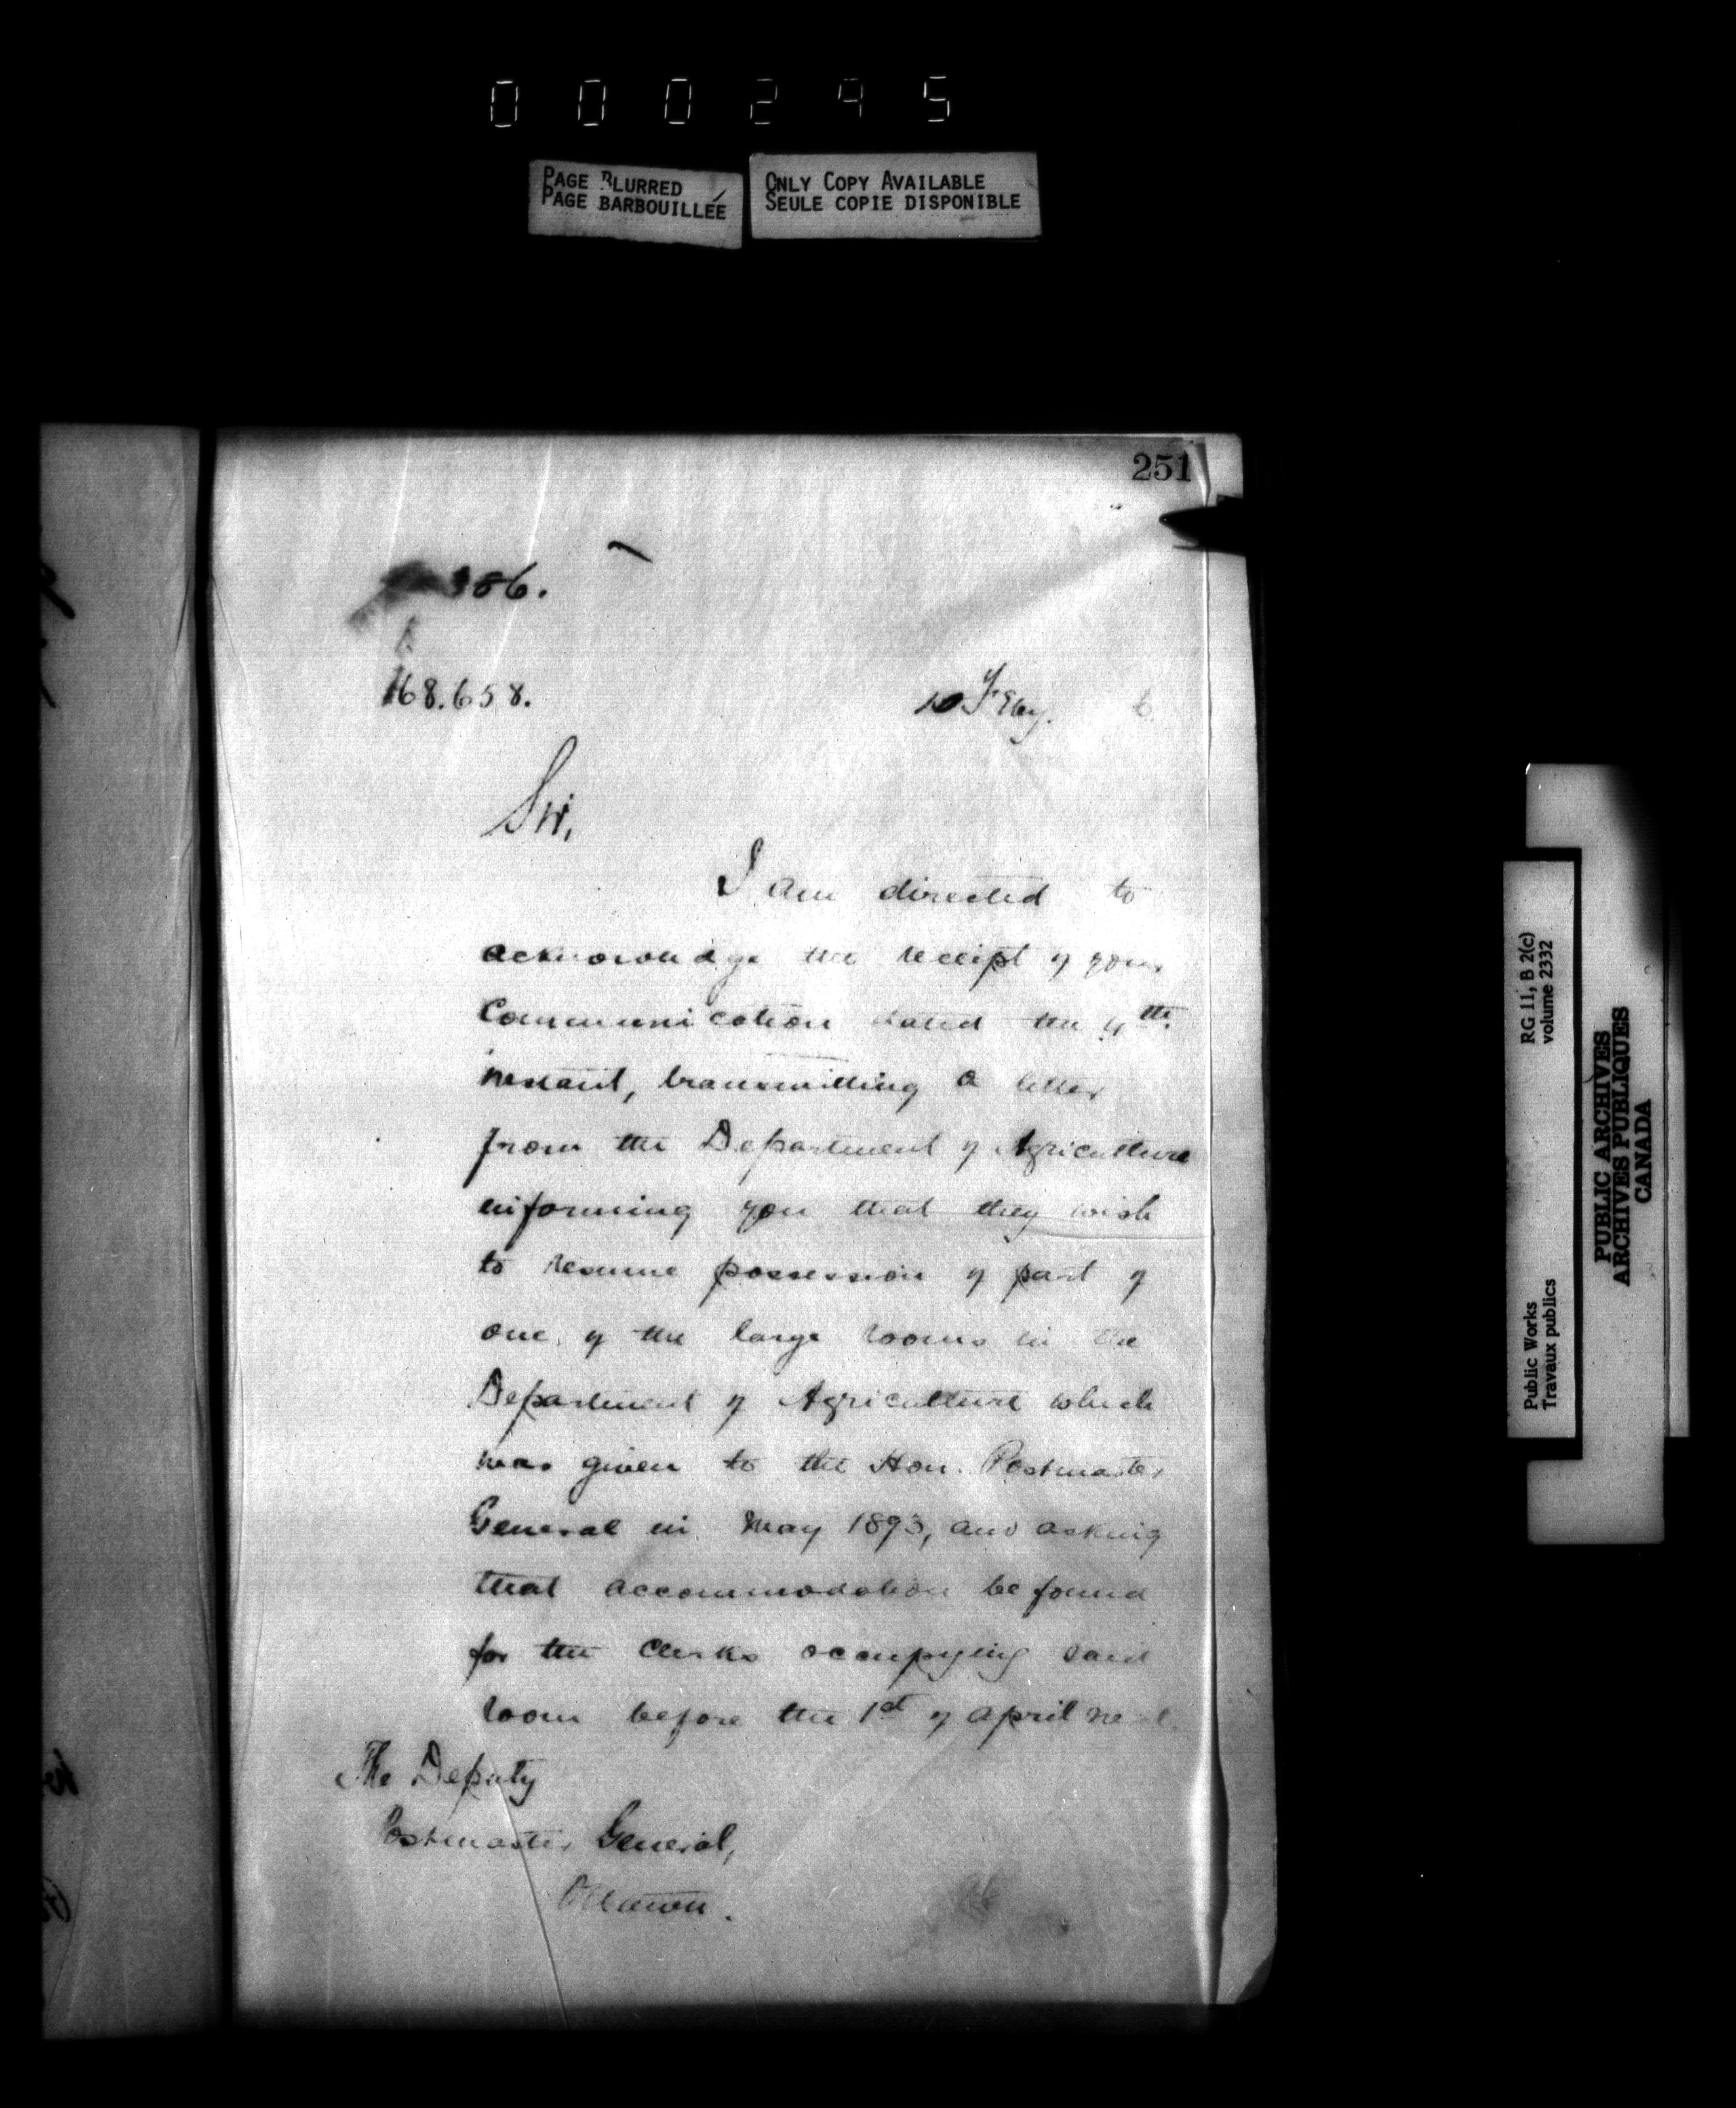 000245
PAGE BLURRED
PAGE BARBOUILLÉE
ONLY COPY AVAILABLE
SEULE COPIE DISPONIBLE
251
386.
168.658.
10 Feby. 6
Sir,
I am directed to
acknowledge the receipt of your
Communication dated the 4th
instant, transmitting a letter
from the Department of Agriculture
informing you that they wish
to resume possession of part of
one of the large rooms in the
Department of Agriculture which
was given to the Hon. Postmaster
General in May 1893, and asking
that accommodation be found
for the Clerks occupying said
room before the 1st of April next.
The Deputy
Postmaster General,
Ottawa.
RG 11, B 2(c)
volume 2332
Public Works
Travaux publics
PUBLIC ARCHIVES
ARCHIVES PUBLIQUES
CANADA